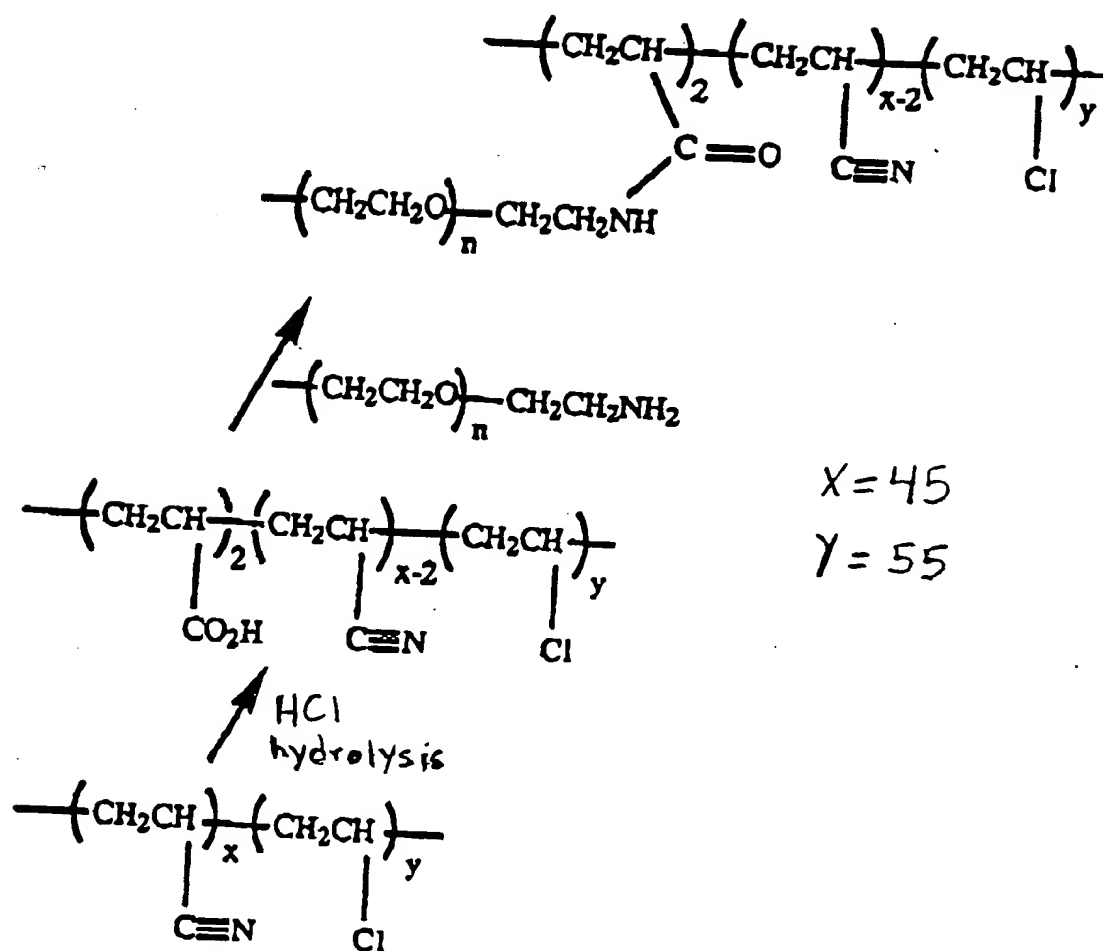 —(CH₂CH)₂—(CH₂CH)ₓ₋₂—(CH₂CH)ᵧ—
C=O
C≡N
Cl
—(CH₂CH₂O)ₙ—CH₂CH₂NH
—(CH₂CH₂O)ₙ—CH₂CH₂NH₂
X=45
Y=55
—(CH₂CH)₂—(CH₂CH)ₓ₋₂—(CH₂CH)ᵧ—
CO₂H
C≡N
Cl
HCl
hydrolysis
—(CH₂CH)ₓ—(CH₂CH)ᵧ—
C≡N
Cl